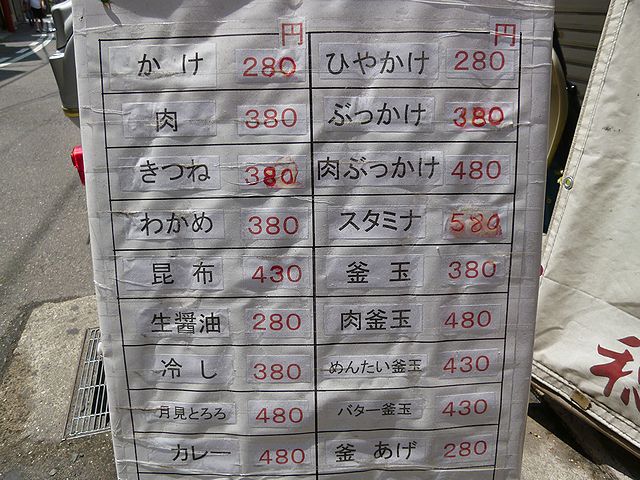 円 円
かけ 280 ひやかけ 280
肉 380 ぶっかけ 380
きつね 380 肉ぶっかけ 480
わかめ 380 スタミナ 580
昆布 430 釜玉 380
生醤油 280 肉釜玉 480
冷し 380 めんたい釜玉 430
月見とろろ 480 バター釜玉 430
カレー 480 釜あげ 280